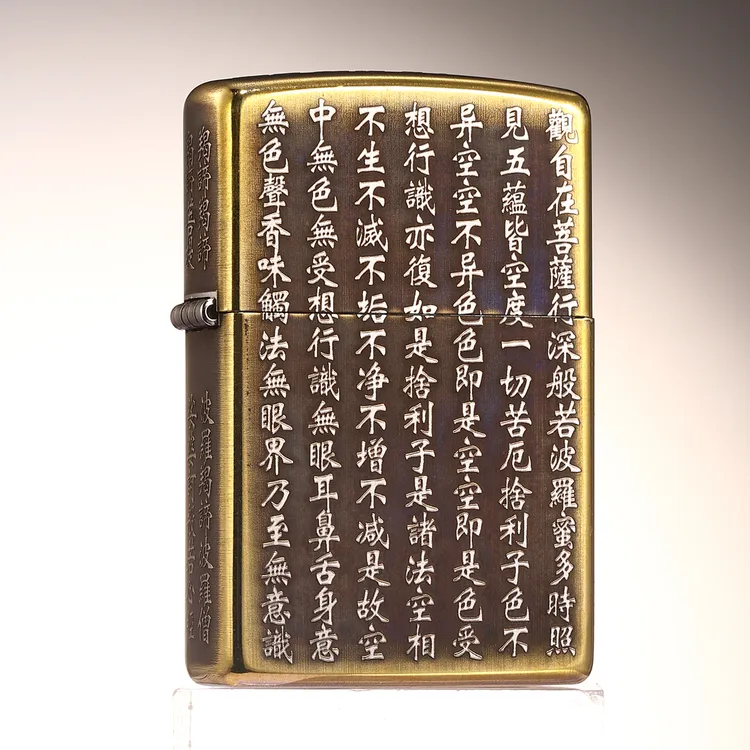 觀自在菩薩行深般若波羅蜜多時照
見五蘊皆空度一切苦厄捨利子色不
异空空不异色色即是空空即是色受
想行識亦復如是捨利子是諸法空相
不生不滅不垢不净不增不减是故空
中無色無受想行識無眼耳鼻舌身意
無色聲香味觸法無眼界乃至無意識
揭諦揭諦波羅揭諦波羅僧